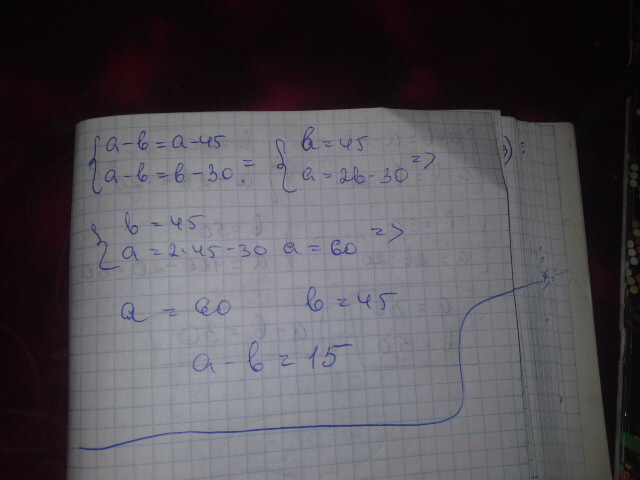 {a-b=a-45 = {b=45
{a-b=b-30 {a=2b-30 =>
{b=45
{a=2·45-30 a=60 =>
a=60 b=45
a-b=15